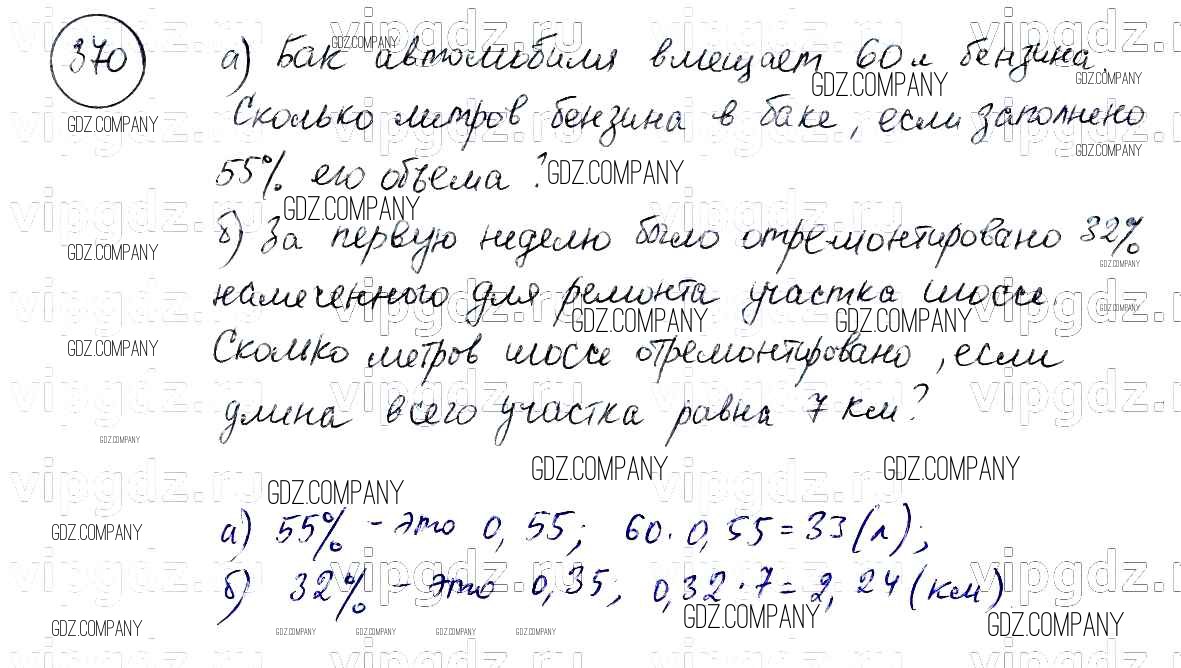 370
а) Бак автомобиля вмещает 60 л бензина.
Сколько литров бензина в баке, если заполнено
55% его объема?
б) За первую неделю было отремонтировано 32%
намеченного для ремонта участка шоссе.
Сколько метров шоссе отремонтировано, если
длина всего участка равна 7 км?
а) 55% - это 0,55; 60 · 0,55 = 33 (л);
б) 32% - это 0,35; 0,32 · 7 = 2,24 (км)
vipgdz.ru
GDZ.COMPANY